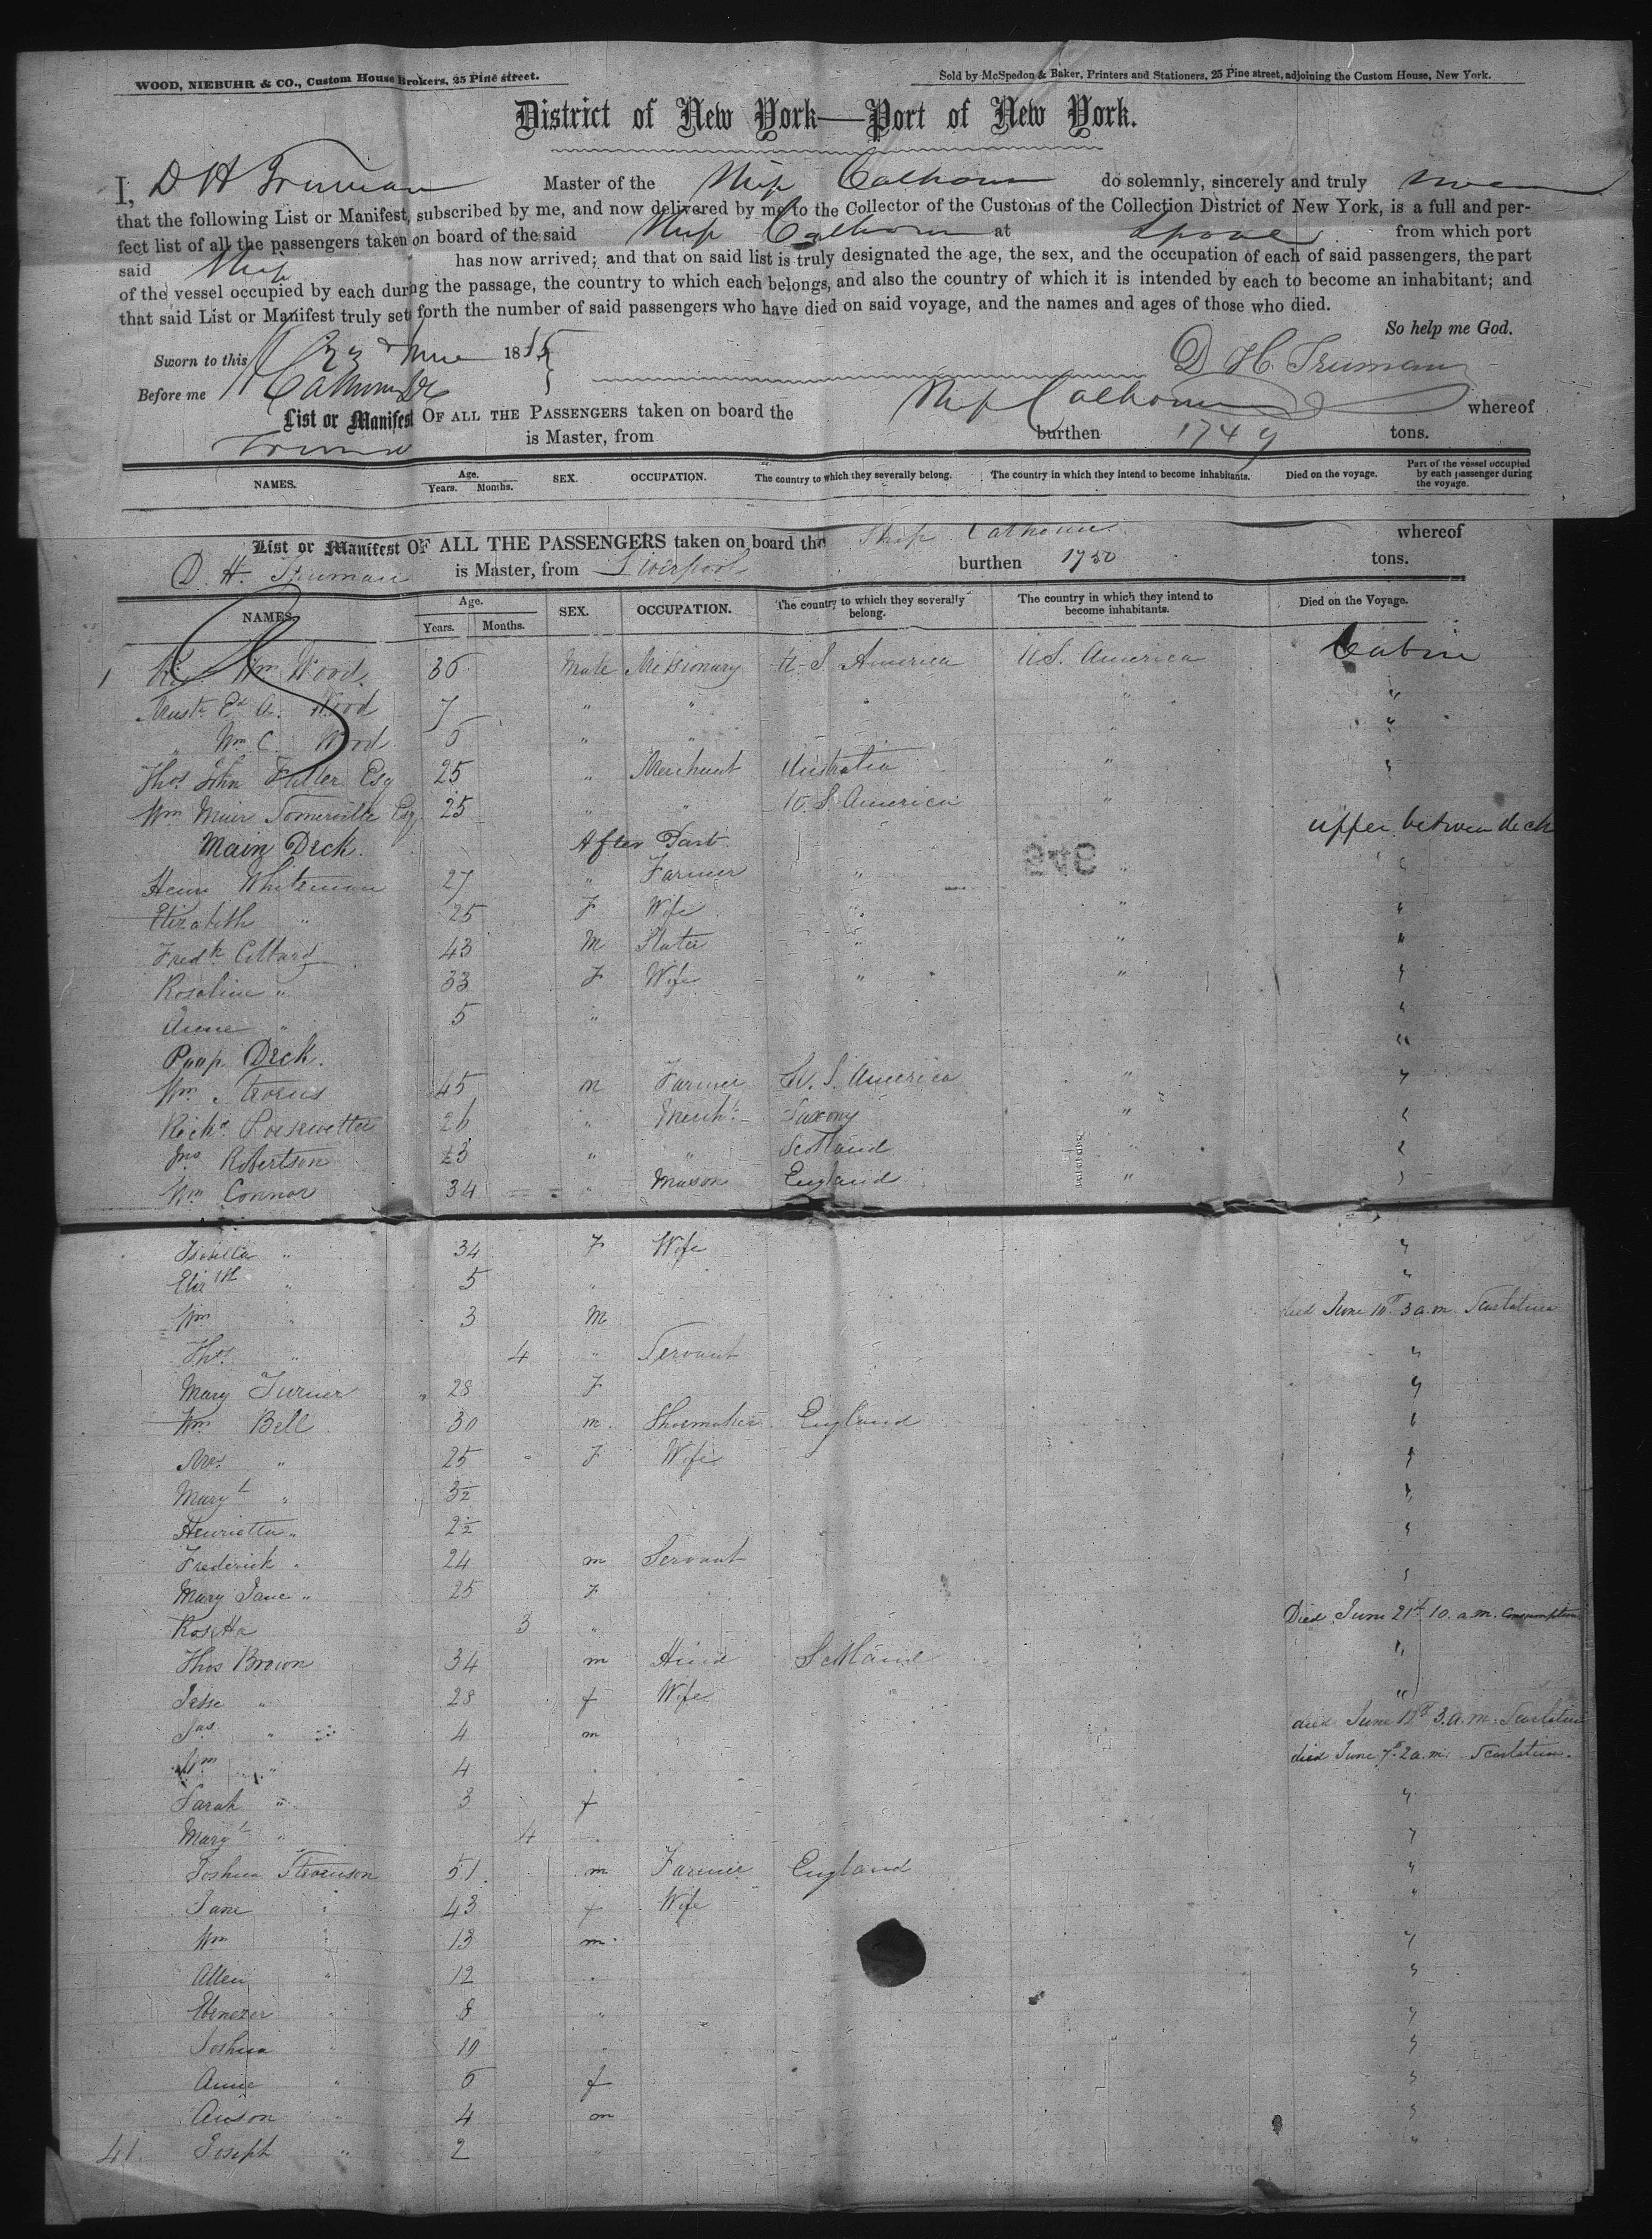 WOOD, NIEBUHR & CO., Custom House Brokers, 25 Pine street.
Sold by McSpedon & Baker, Printers and Stationers, 25 Pine street, adjoining the Custom House, New York.
District of New York—Port of New York.
I, D H Truman Master of the Ship Calhoun do solemnly, sincerely and truly swear
that the following List or Manifest, subscribed by me, and now delivered by me to the Collector of the Customs of the Collection District of New York, is a full and per-
fect list of all the passengers taken on board of the said Ship Calhoun at Lpool from which port
said Ship has now arrived; and that on said list is truly designated the age, the sex, and the occupation of each of said passengers, the part
of the vessel occupied by each during the passage, the country to which each belongs, and also the country of which it is intended by each to become an inhabitant; and
that said List or Manifest truly set forth the number of said passengers who have died on said voyage, and the names and ages of those who died.
So help me God.
Sworn to this 23 June 1855
D. H. Truman
Before me
List or Manifest OF ALL THE PASSENGERS taken on board the Ship Calhoun whereof
Truman is Master, from burthen 1749 tons.
NAMES. Age. Years. Months. SEX. OCCUPATION. The country to which they severally belong. The country in which they intend to become inhabitants. Died on the voyage. Part of the vessel occupied by each passenger during the voyage.
List or Manifest OF ALL THE PASSENGERS taken on board the Ship Calhoun whereof
D. H. Truman is Master, from Liverpool burthen 1750 tons.
NAMES. Age. Years. Months. SEX. OCCUPATION. The country to which they severally belong. The country in which they intend to become inhabitants. Died on the Voyage.
1 Wm Wood 36 Male Missionary U.S. America U.S. America Cabin
Mastr Ed A. Wood 7 " " " " "
" Wm C. Wood 5 " " " "
Thos John Fuller Esq 25 " Merchant Australia " "
Wm Muir Somerville Esq 25 " " U.S. America "
Main Deck. After Part upper between deck
Henry Whiteman 27 " Farmer " " "
Elizabeth " 25 F Wife " " "
Fredk Collard 43 M Slater " " "
Rosaline " 33 F Wife " " "
Anne " 5 " "
Poop Deck. "
Wm 45 m Farmer U.S. America " "
Richd 26 " Mercht Saxony " "
Jno Robertson 23 " " Scotland "
Wm Connor 34 " Mason England " "
Isabella " 34 F Wife "
Elizth " 5 " "
Wm " 3 M died June 10th 3 a.m. Scarlatina
Thos " 4 " Servant "
Mary Turner 28 F "
Wm Bell 30 m. Shoemaker England "
Mrs " 25 F Wife "
Margt " 3½ "
Henrietta " 2½ "
Frederick " 24 m Servant "
Mary Jane " 25 F
Rosetta 3 " Died June 21st 10. a.m. Consumption
Thos Brown 34 m Hind Scotland "
Jesse " 28 f Wife "
Jas " 4 m died June 12th 3.a.m. Scarlatina
Wm " 4 " died June 7th 2 a.m. Scarlatina.
Sarah " 3 f "
Margt " 4 "
Joshua Stevenson 51 m Farmer England "
Jane " 43 f Wife "
Wm " 13 m "
Allen " 12 " "
Ebenezer " 8 " "
Joshua " 10 " "
Anne " 6 f "
Anson " 4 m "
41. Joseph " 2 " "